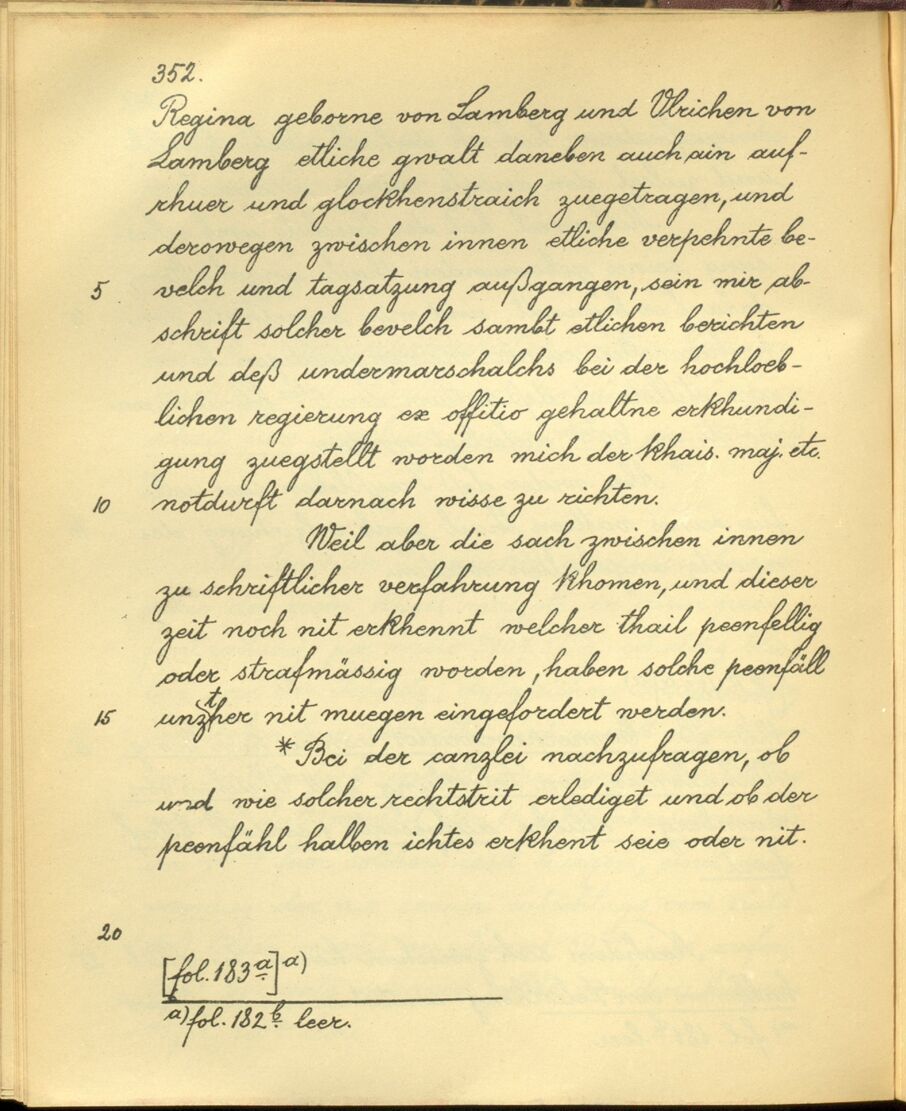 352.
Regina geborne von Lamberg und Ulrichen von
Lamberg etliche gwalt daneben auch ain auf-
rhuer und glockhenstraich zuegetragen, und
derowegen zwischen innen etliche verpehnte be-
5 velch und tagsatzung außgangen, sein mir ab-
schrift solcher bevelch sambt etlichen berichten
und deß undermarschalchs bei der hochloeb-
lichen regierung ex offitio gehaltne erkhundi-
gung zuegstellt worden mich der khais. maj. etc.
10 notdurft darnach wisse zu richten.
Weil aber die sach zwischen innen
zu schriftlicher verfahrung khomen, und dieser
zeit noch nit erkhennt welcher thail peenfellig
oder strafmässig worden, haben solche peenfäll
15 unzther nit muegen eingefordert werden.
* Bei der canzlei nachzufragen, ob
und wie solcher rechtstrit erlediget und ob der
peenfähl halben ichtes erkhent seie oder nit.
20
[fol. 183a] a)
a) fol. 182b leer.